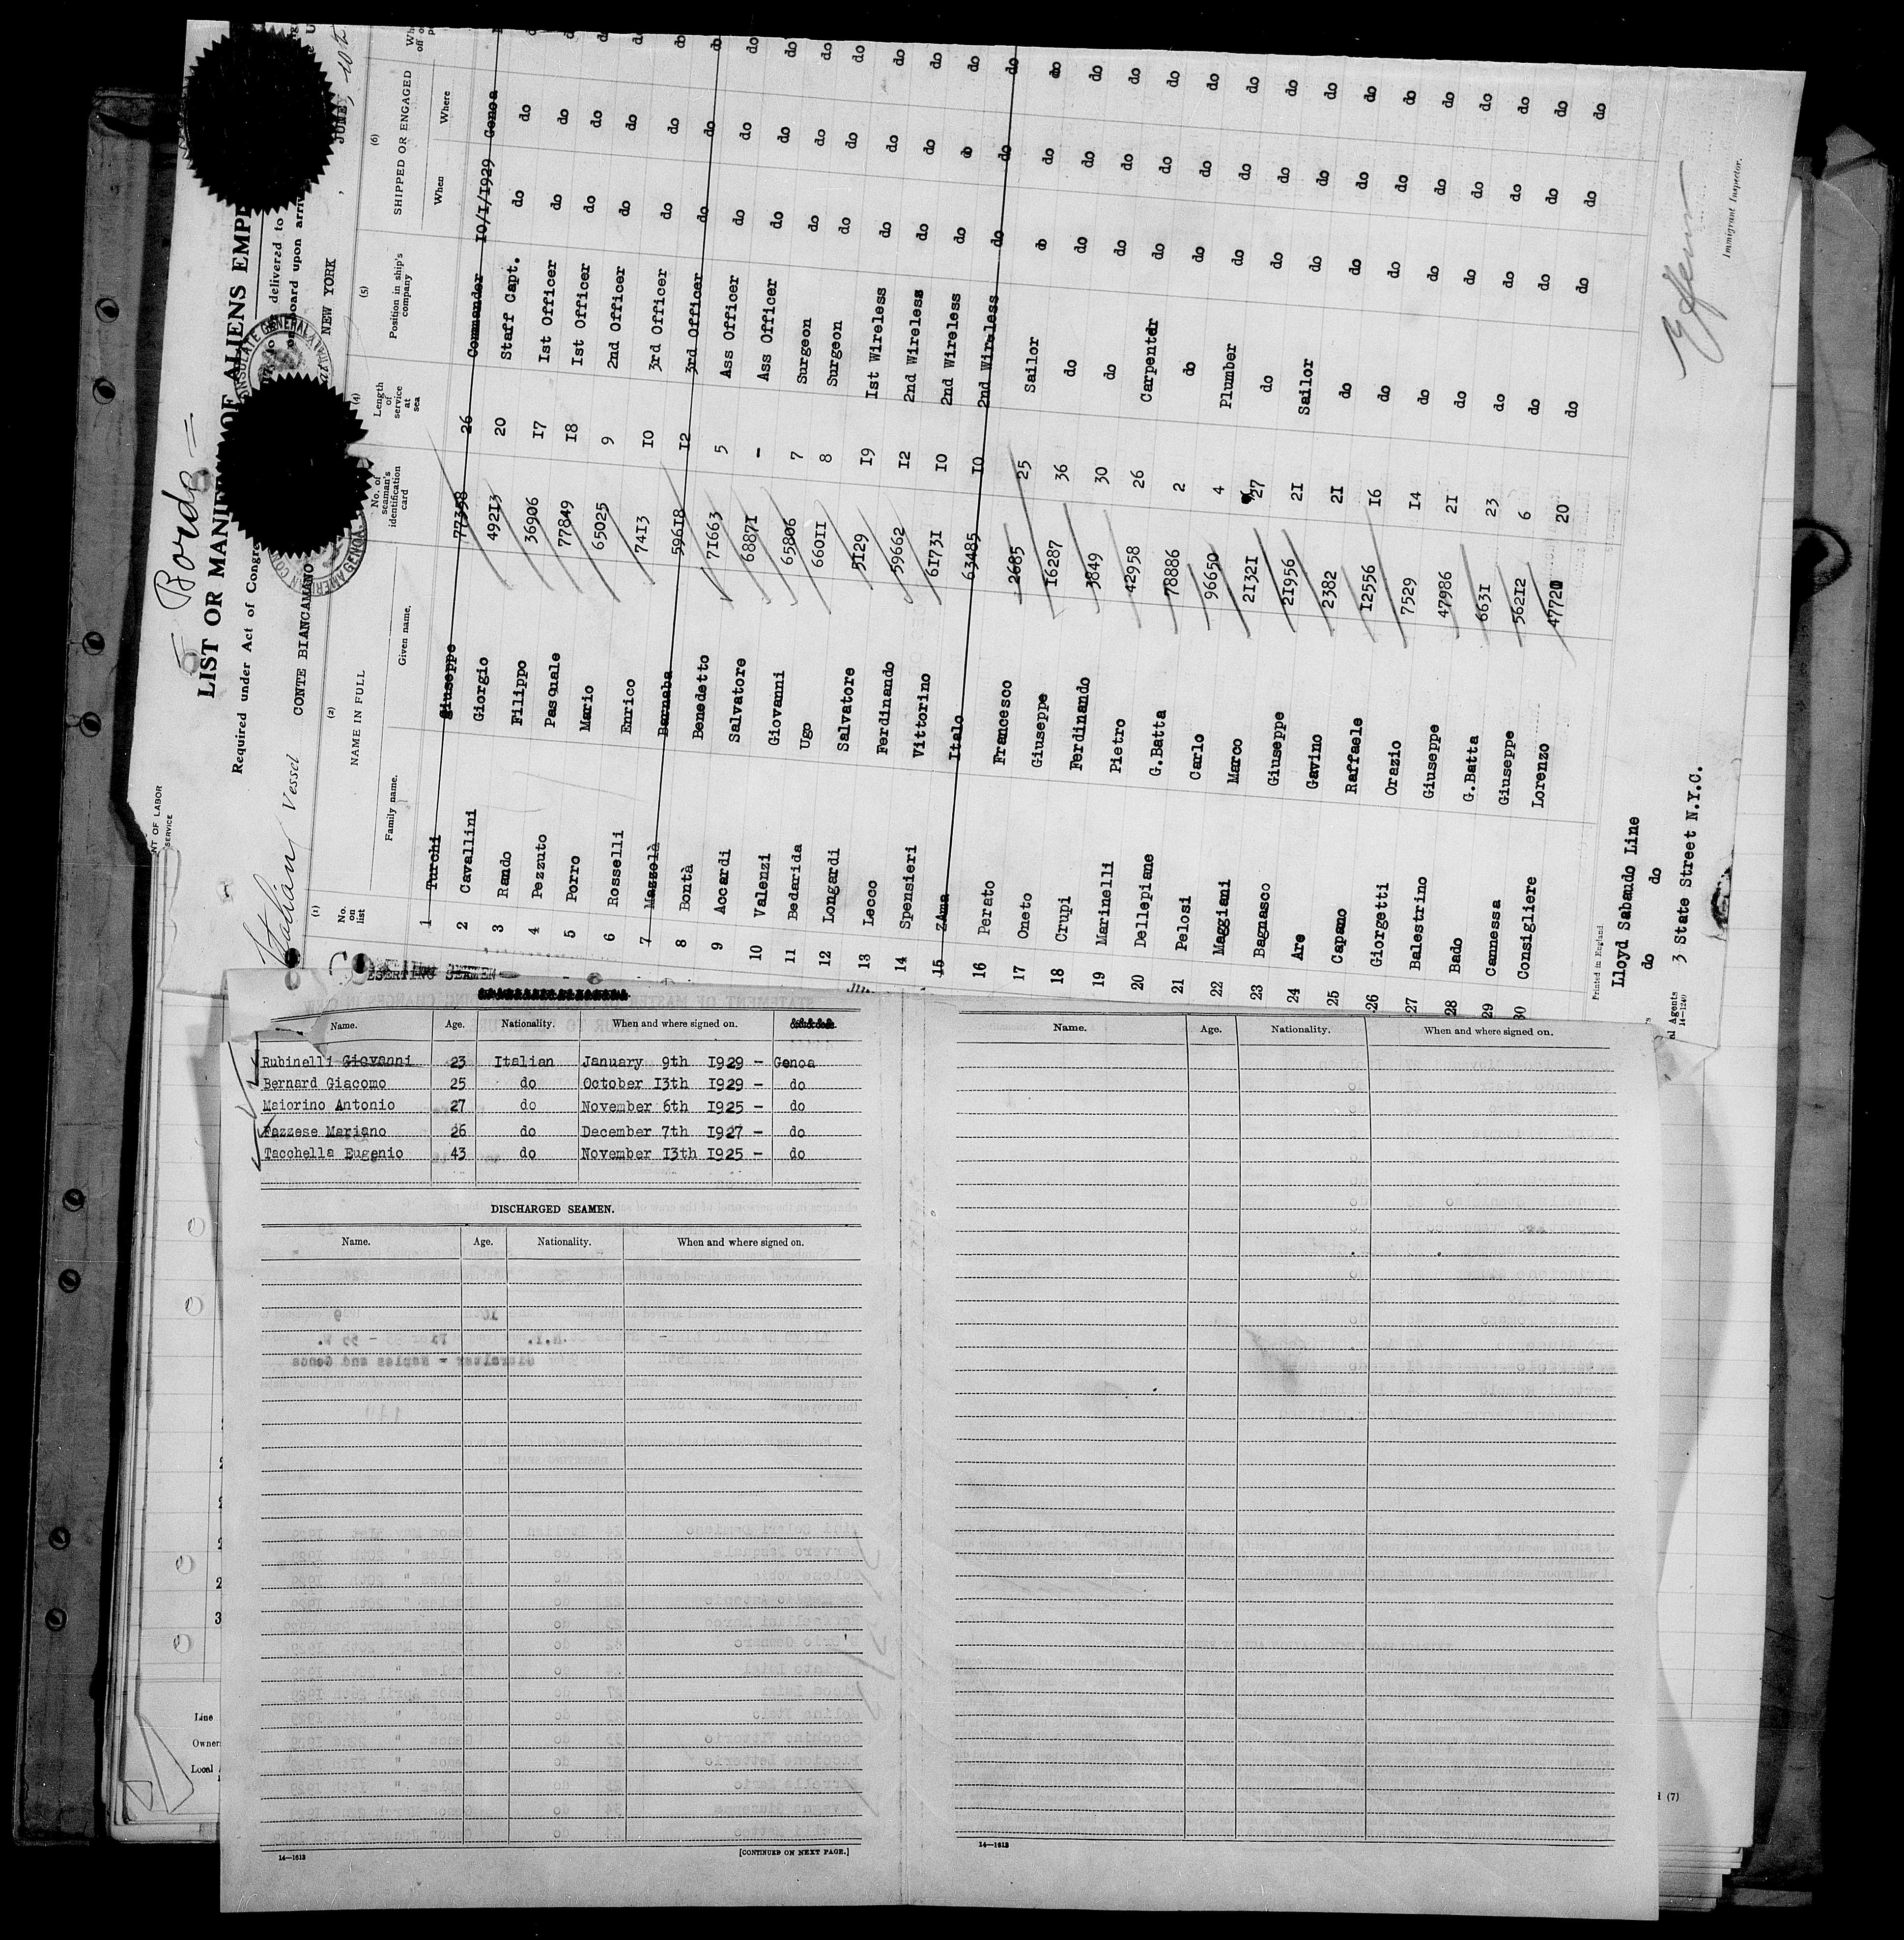 Bordo =
LIST OR MANIFEST OF ALIENS EMP
Required under Act of Congre
delivered to
board upon arriv
Italian Vessel CONTE BIANCAMANO NEW YORK , JUNE, 10th
(1) (2) (4) (5) (6)
No. on list NAME IN FULL No. of seaman's identification card Length of service at sea Position in ship's company SHIPPED OR ENGAGED
Family name. Given name. When Where
1 Turchi Giuseppe 77358 26 Commander IO/I/I929 Genoa
2 Cavallini Giorgio 49213 20 Staff Capt. do do
3 Rando Filippo 36906 I7 Ist Officer do do
4 Pezzuto Pasquale 77849 I8 Ist Officer do do
5 Porro Mario 65025 9 2nd Officer do do
6 Rosselli Enrico 74I3 IO 3rd Officer do do do
7 Mazzolà Barnaba 596I8 I2 3rd Officer do do do
8 Bontà Benedetto 7I663 5 Ass Officer do do do
9 Accardi Salvatore 6887I - Ass Officer do do do
10 Valenzi Giovanni 65806 7 Surgeon do do do
11 Bedarida Ugo 660II 8 Surgeon do do do
12 Longardi Salvatore 5I29 I9 Ist Wireless do do do
13 Lecco Ferdinando 59662 I2 2nd Wireless do do do
14 Spensieri Vittorino 6I73I IO 2nd Wireless do do do
15 zAma Italo 63485 IO 2nd Wireless do do do
16 Perato Francesco 2685 25 Sailor do do do
17 Oneto Giuseppe I6287 36 do do do do
18 Crupi Ferdinando 3849 30 do do do do
19 Marinelli Pietro 42958 26 Carpenter do do do
20 Dellepiane G.Batta 78886 2 do do do do
21 Pelosi Carlo 96650 4 Plumber do do do
22 Maggiani Marco 2I32I 27 do do do do
23 Bagnasco Giuseppe 2I956 2I Sailor do do do
24 Are Gavino 2382 2I do do do do
25 Capano Raffaele I2556 I6 do do do do
26 Giorgetti Orazio 7529 I4 do do do do
27 Balestrino Giuseppe 47986 2I do do do do
28 Bado G.Batta 663I 23 do do do do
29 Cannessa Giuseppe 562I2 6 do do do do
30 Consigliere Lorenzo 47720 20 do do do do
Printed in England.
Lloyd Sabaudo Line
do do
al Agents 3 State Street N.Y.C.
14-1240
Immigrant Inspector.
ESERTING SEAMEN
Name. Age. Nationality. When and where signed on.
Rubinelli Giovanni 23 Italian January 9th I929 - Genoa
Bernard Giacomo 25 do October I3th I929 - do
Maiorino Antonio 27 do November 6th I925 - do
Fazzese Mariano 26 do December 7th I927 - do
Tacchella Eugenio 43 do November I3th I925 - do
DISCHARGED SEAMEN.
Name. Age. Nationality. When and where signed on.
14—1613
[CONTINUED ON NEXT PAGE.]
Name. Age. Nationality. When and where signed on.
14—1613
Line
Owner
Local
(7)